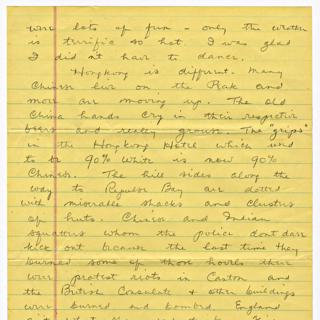 were lots of fun - only the weather
is terrific so hot I was glad
I did n't have to dance.
Hongkong is different. Many
Chinese live on the Peak and
more are moving up. The old
China hands cry in their respective
beers and really grouse. The "grips"
in the Hongkong Hotel which used
to be 90% White is now 90%
Chinese. The hill sides along the
way to Repulse Bay are dotted
with miserable shacks and clusters
of huts. Chinese and Indian
squatters whom the police dont dare
kick out because the last time they
burned some of those hovels there
were protest riots in Canton and
the British Consulate & other buildings
were burned and bombed. England